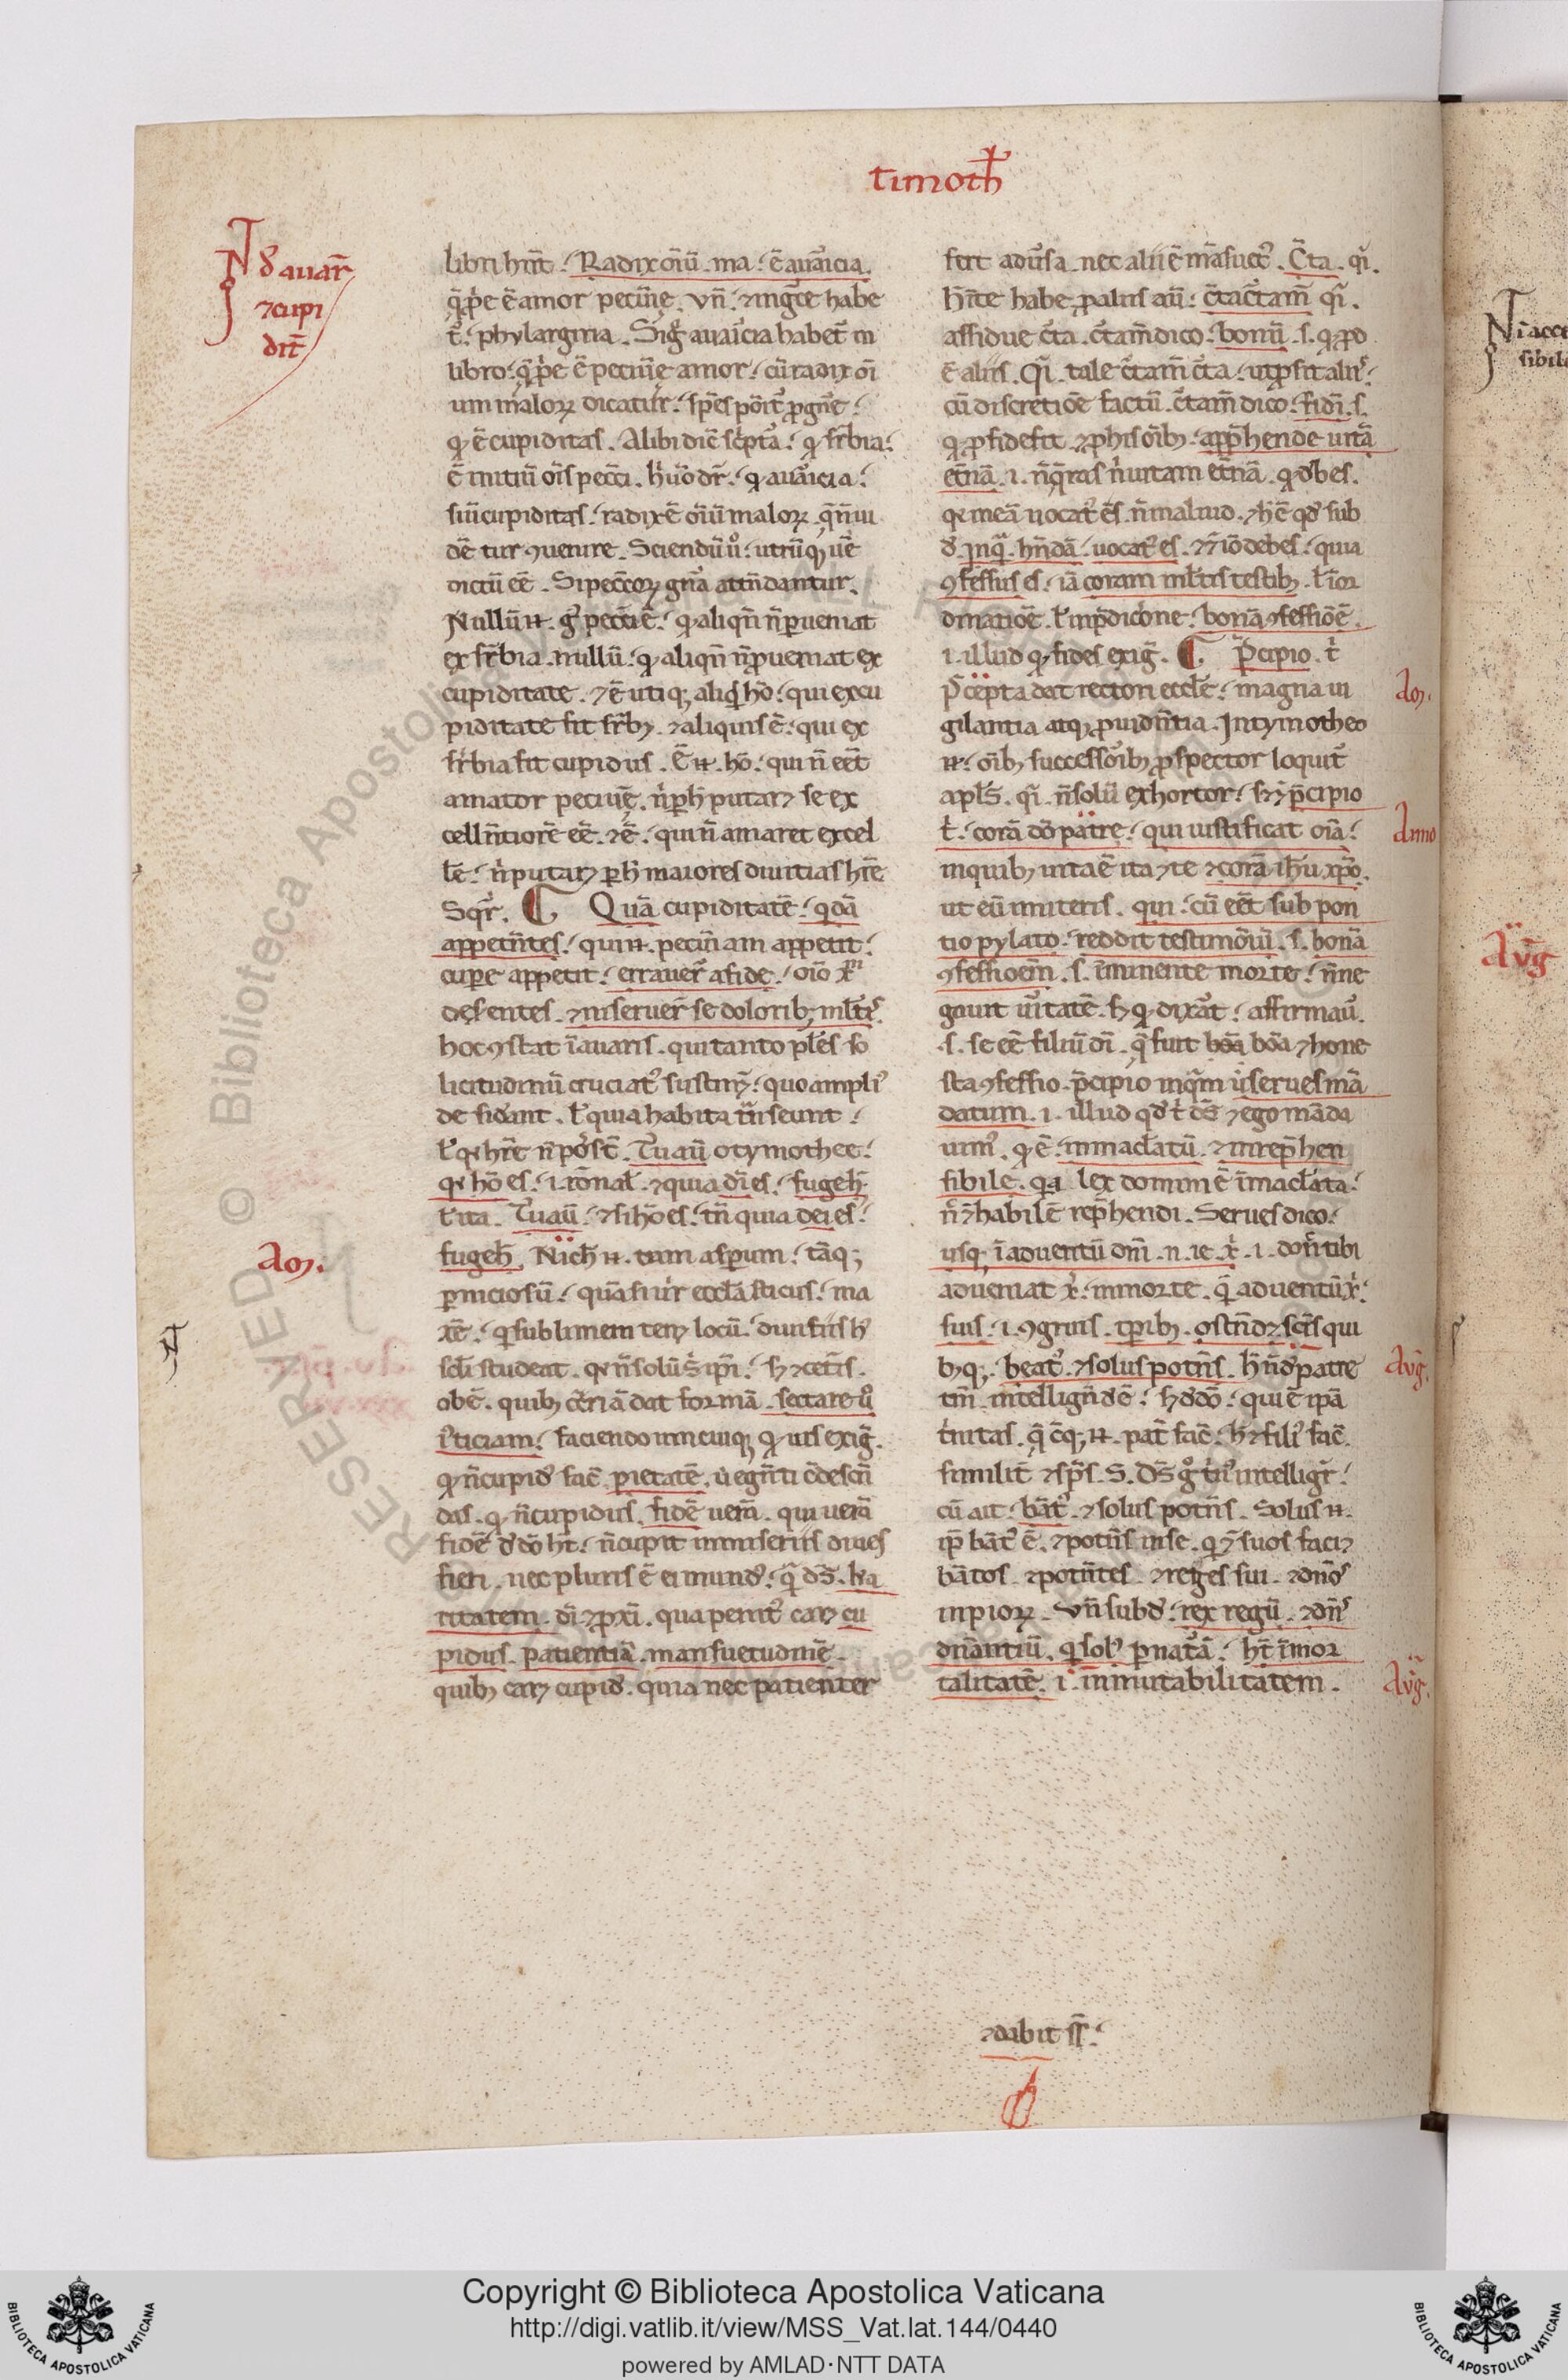 timoth̄
N̄ ꝺ auar̄
⁊cupi
dit̄
libri hn̄t. Radix oīū ma. ē auar̓icia.
q̄ p̓e ē amor pecun̄ie. vn̄ ⁊ in gr̄ce habe
t̓. phylargiria. Sig̓ auar̓icia habet̓ in
libro. q̄ p̓e ē pecun̄ie amor. cū radix oī
um maloꝝ dicatur. sp̄es pōit̓ ꝓ gn̄e.
ꝙ ē cupiditas. Alibi dic̄ sc̓pta̓. ꝙ sr̄bia.
ē initiū oīs pecc̄i. h̓ uo dr̄. ꝙ auar̓icia.
siue cupiditas. radix ē oīū maloꝝ. q̄ n̄ ui
dētur ꝯuenire. Sciendū u̓o. utrūqꝫ uē
dictū eē. Si pecc̄oꝝ gn̄a attēndantur.
Nullū n̄. g̓ pecc̄ ē. ꝙ aliqn̄ n̄ ꝓueniat
ex sr̄bia. nullū. ꝙ aliqn̄ n̄ ꝓueniat ex
cupiditate. ⁊ ē utiqꝫ aliq̓ hō. qui ex cu
piditate fit sr̄bꝰ. ⁊ aliquis ē. qui ex
sr̄bia fit cupidus. Ē n̄. hō. qui n̄ eēt
amator pecunie. n̓ ꝑ h̓ putaꝫ se ex
cellen̄tiorē eē. ⁊ ē. qui n̄ amaret excel
lē. n̓ putaꝫ ꝑ h̓ maiores diuitias hr̄e
Sqr̄. Quā cupiditatē. q̄dā
appetēn̄tes. qui n̄. pecuniam appetit.
cupe appetit. errauer̄ a fide. oīo x̄m
deserentes. ⁊ inseruer̄ se doloribꝫ ml̄tis.
hoc ꝯstat ī auaris. qui tanto pl̄es so
licitudinū cruciatꝰ sustineꝫ. quo ampliꝰ
desid̓ant. t̓ quia habita tn̄seunt.
t̓ qꝛ hr̄e n̄ poss̄t. Tu aū o tymothee.
qꝛ hō es. i. rōnal. ⁊ quia dī es. fuge h̓
t̓ ita. Tu aū. ⁊ si hō es. tn̄ quia dei es.
fuge h̓. Nich̓ n̄. tam asꝑum. tāqꝫ
ꝑniciosū. quā si uir eccl̄asticus. ma
xē. q̓ sublimem teneꝫ locū. diuitiis h̓
scl̄i studeat. qꝛ n̄ solū s̓ ipi. sꝫ ⁊ cet̓is.
obē. quibꝫ cēriā dat formā. sectare u̓o
iꝰticiam. faciendo unicuiqꝫ ꝙ uis exig̓.
ꝙ n̄ cupidꝰ fac̄. pietatē. u̓ egn̄ti cōdescn̄
das. ꝙ n̄ cupidus. fidē uerā. qui uerā
fidē ꝺ dō ht̄. n̄ cupit in miseriis diues
fieri. nec pluris ē ei mundꝰ. q̄ d̄s. ka
ritatem. dī ⁊ ꝓxi. qua penitꝰ careꝫ cu
pidus. patientiā. mansuetudinē.
quibꝫ careꝫ cupidꝰ. quia nec patienter
Am.
N̄
fert aduersa. nec alii ē māsuetꝰ. Ct̄a. qī.
h̄ite habe. palus aū. cta ctam̄ qī.
assidue cta. ctam̄ dico. bonū. s. ꝙ ꝓd
ē aliis. Qī. tale ctam̄ cta. ut ꝓsit aliis.
cū discretiōe factū. ctam̄ dico. fidī. s.
ꝙ ꝓ fide fit. ⁊ ꝓ his oībꝫ. apprehende uitā
etn̄ā. i. n̄ q̄ras n̓ uitam etn̄ā. ꝙ ꝺbes.
qꝛ in eā uocatꝰ es. n̄ in aliud. ⁊ h̓ ē qd̓ sub
ꝺ. In q̄ hn̄dā. uocatꝰ es. ⁊ n̄ īo debes. quia
ꝯfessus es. iā coram ml̄tis testibꝫ. t̓ ī or
dinatiōe. t̓ in p̄dicōne. bonā ꝯfessiōe.
i. illud ꝙ fides exig̓. P̄cipio. t̓
p̄cepta dat rectori eccl̄e. magna ui
gilantia atqꝫ ꝓuidn̄tia. In tymotheo
n̄. oībꝫ successoībꝫ ꝓspector loquit̓
apl̄s. qī. n̄ solū exhortor. sꝫ ⁊ p̄cipio
t̓. corā dō patre. qui iustificat oīa.
in quibꝫ uita ē ita ⁊ te ⁊ corā ih̄u xp̄o.
ut eū imiteris. qui. cū eēt sub pon
tio pylato. reddit testimōiū. s. bonā
ꝯfessioem̄. s. īminente morte. n̄ ne
gauit ūitatē. sꝫ ꝙ dix̓at. affirmau̓.
s. se eē filiū dī. q̄ fuit bōa bōa ⁊ hone
sta ꝯfessio. p̄cipio inqm̄ u̓ serues mā
datum. i. illud qd̓ t̓ d̄s ⁊ ego māda
uim̓. ꝙ ē. inmacl̄atū. ⁊ inrep̄hen
sibile. qa lex domini ē īmacl̄ata.
n̄ ⁊ habilē rep̄hendi. Serues dico.
usqꝫ ī aduentū dn̄i. n. ie. x̄. i. donec tibi
adueniat x̄. in morte. q̄ aduentū x̄.
suis. i. ꝯgruis. tp̄ibꝫ. ostn̄deꝫ sctīs qui
bꝫqꝫ. beatꝰ. ⁊ solus potn̄s. h̄ n̄ ꝺ patre
tm̄. intellign̄d ē. sꝫ ꝺ dō. qui ē ipā
t̓nitas. q̄ cqꝫ n̄. pat̓ fac̄. h̓ ⁊ filiꝰ fac̄.
similit̓ ⁊ sp̄s. S. D̄s g̓o t̓nꝰ intelligit̓.
cū ait. bāt̓. ⁊ solus potn̄s. Solus n̄.
ip̄ bāt̓ ē. ⁊ potn̄s in se. ꝙ ⁊ suos faciꝫ
bātos. ⁊ potn̄tes. ⁊ reges sui. ⁊ dn̄os
inpioꝝ. vn̄ subd̓. rex regū. ⁊ dn̄s
dn̄antiū. q̓ solꝰ ꝑ nat̓ā. ht̄ īmor
talitatē. i. inmutabilitatem.
Am.
Aug̓.
Aug̓.
⁊ dabit ss̄.
Aug̓
Copyright © Biblioteca Apostolica Vaticana
http://digi.vatlib.it/view/MSS_Vat.lat.144/0440
powered by AMLAD·NTT DATA
BIBLIOTECA APOSTOLICA VATICANA
BIBLIOTECA APOSTOLICA VATICANA